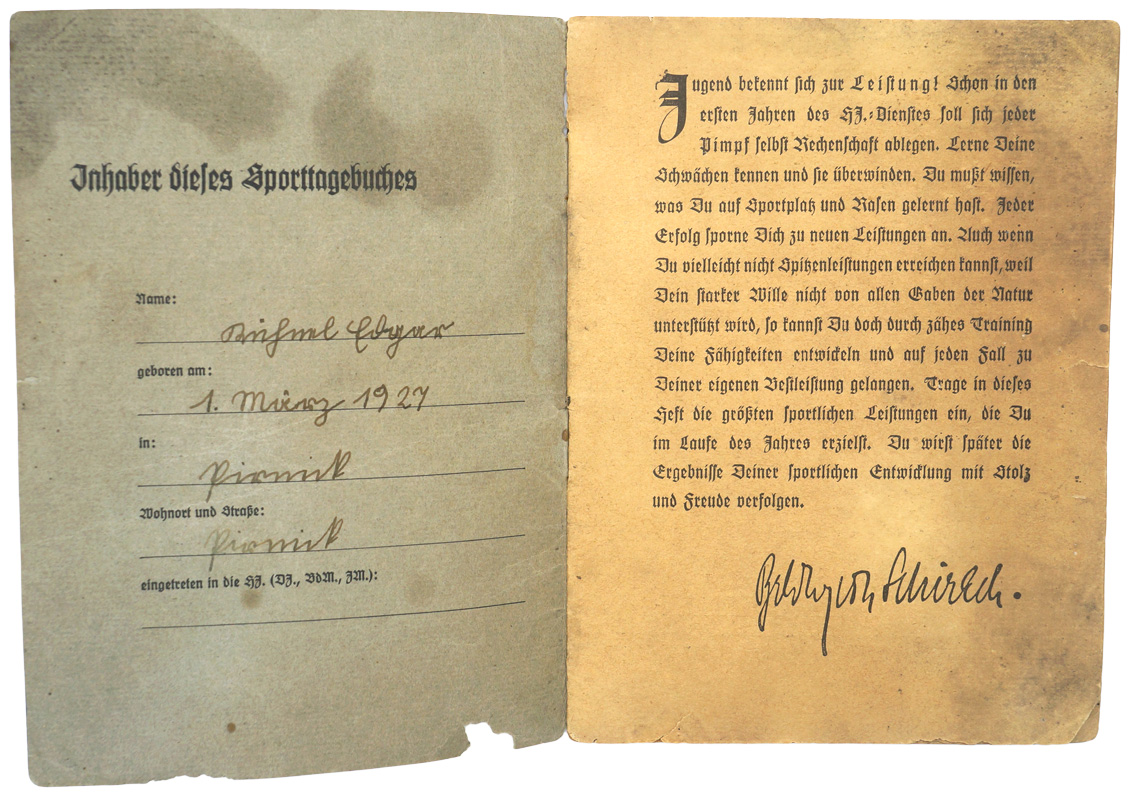 Inhaber dieses Sporttagebuches
Name:
Kühnel Edgar
geboren am:
1. März 1927
in:
Pirnik
Wohnort und Straße:
Pirnik
eingetreten in die HJ. (DJ., BdM., JM.):
Jugend bekennt sich zur Leistung! Schon in den
ersten Jahren des HJ.-Dienstes soll sich jeder
Pimpf selbst Rechenschaft ablegen. Lerne Deine
Schwächen kennen und sie überwinden. Du mußt wissen,
was Du auf Sportplatz und Rasen gelernt hast. Jeder
Erfolg sporne Dich zu neuen Leistungen an. Auch wenn
Du vielleicht nicht Spitzenleistungen erreichen kannst, weil
Dein starker Wille nicht von allen Gaben der Natur
unterstützt wird, so kannst Du doch durch zähes Training
Deine Fähigkeiten entwickeln und auf jeden Fall zu
Deiner eigenen Bestleistung gelangen. Trage in dieses
Heft die größten sportlichen Leistungen ein, die Du
im Laufe des Jahres erzielst. Du wirst später die
Ergebnisse Deiner sportlichen Entwicklung mit Stolz
und Freude verfolgen.
Baldur von Schirach.